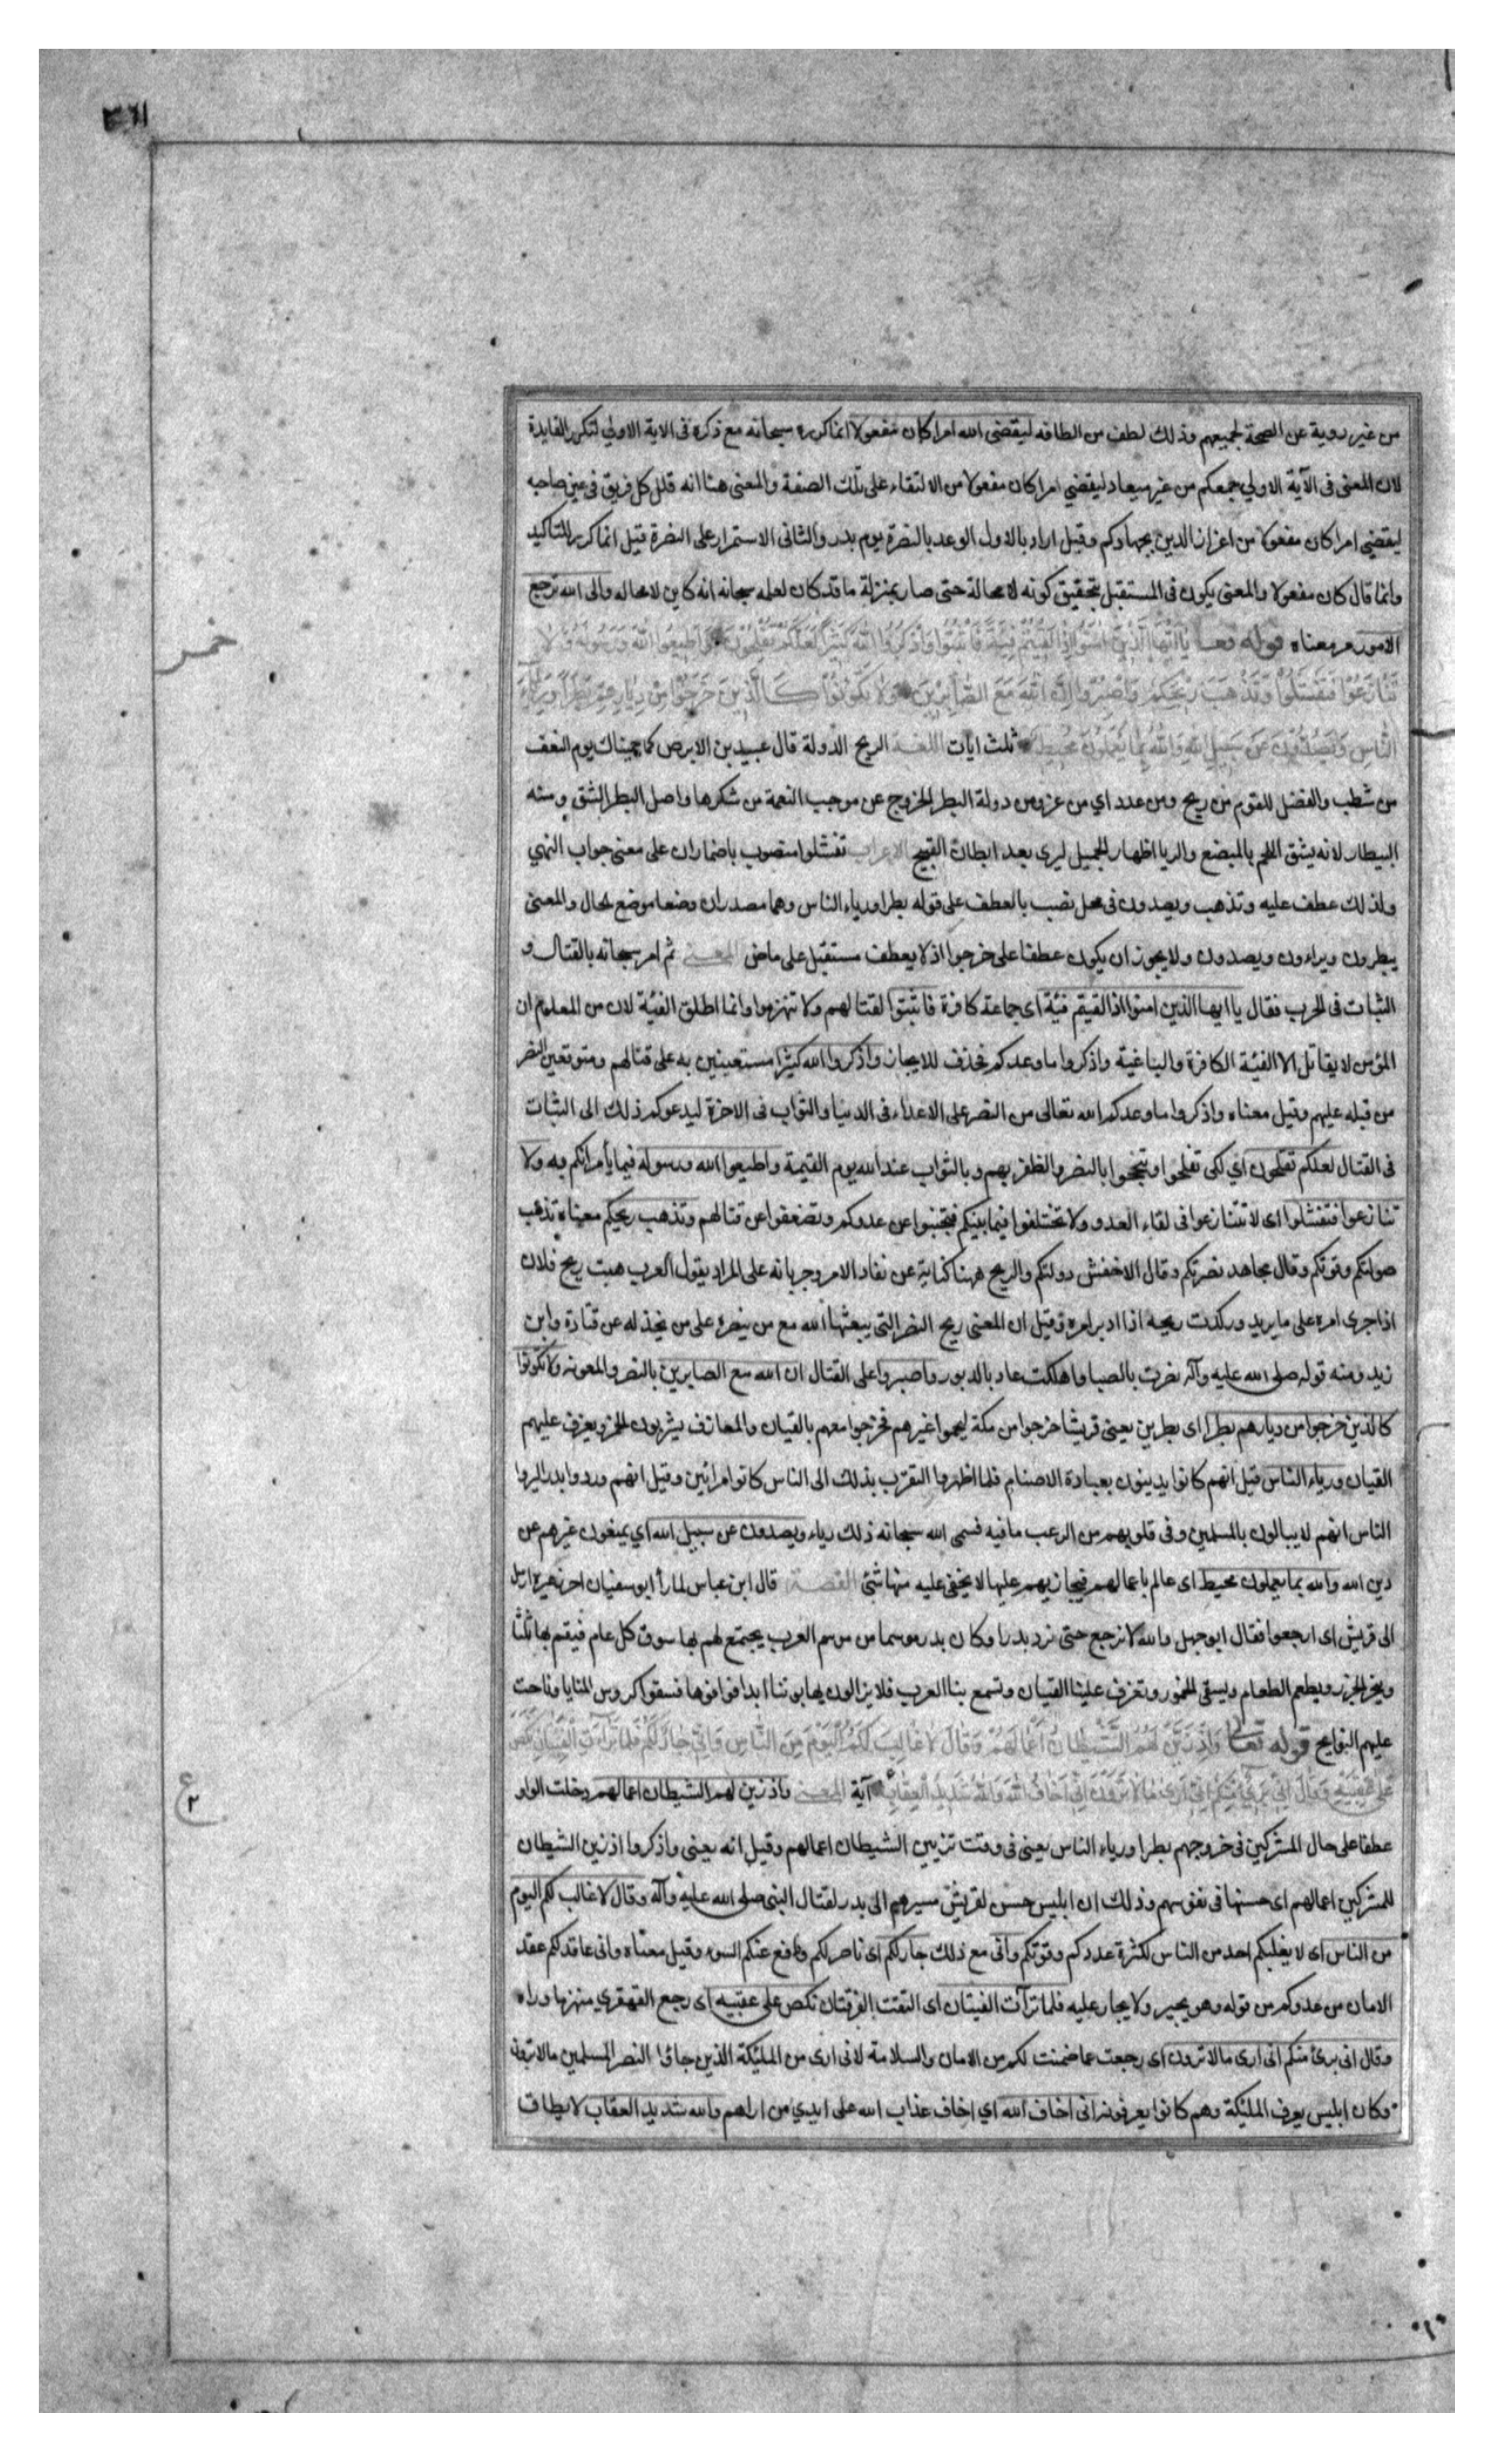 ٣٦١
من غير روية عن الصحة لجميعهم وذلك لطف من الطافه ليقضى الله امرا كان مفعولا انما كرره سبحانه مع ذكره فى الاية الاولي لتكرر الفايدة
لان المعنى فى الآية الاولي جمعكم من غير ميعاد ليقضي امرا كان مفعولا من الالتقاء على تلك الصفة والمعنى هنا انه قلل كل فريق فى عين صاحبه
ليقضي امرا كان مفعولا من اعزاز الدين بجهادكم وقيل اراد بالاول الوعد بالنصرة يوم بدر والثانى الاستمرار على النصرة قيل انما كرر للتاكيد
وانما قال كان مفعولا والمعنى يكون فى المستقبل بتحقيق كونه لا محالة حتى صار بمنزلة ما قد كان لعلمه سبحانه انه كاين لا محاله والى الله ترجع
الامور مر معناه قوله تعا يَا اَيُّهَا الَّذِينَ اٰمَنُوا اِذَا لَقِيتُمْ فِئَةً فَاثْبُتُوا وَاذْكُرُوا اللّٰهَ كَثِيرًا لَعَلَّكُمْ تُفْلِحُونَ وَاَطِيعُوا اللّٰهَ وَرَسُولَهُ وَلَا
تَنَازَعُوا فَتَفْشَلُوا وَتَذْهَبَ رِيحُكُمْ وَاصْبِرُوا اِنَّ اللّٰهَ مَعَ الصَّابِرِينَ وَلَا تَكُونُوا كَالَّذِينَ خَرَجُوا مِنْ دِيَارِهِمْ بَطَرًا وَرِئَاءَ
النَّاسِ وَيَصُدُّونَ عَنْ سَبِيلِ اللّٰهِ وَاللّٰهُ بِمَا يَعْمَلُونَ مُحِيطٌ ثلث ايات اللغة الريح الدولة قال عبيد بن الابرص كما حميناك يوم النعف
من شطب والفضل للقوم من ريح ومن عدد اي من عز ومن دولة البطر الخروج عن موجب النعمة من شكرها واصل البطر الشق ومنه
البيطار لانه يشق اللحم بالمبضع والريا اظهار الجميل ليرى بعد ابطان القبيح الاعراب تفشلوا منصوب باضمار ان على معنى جواب النهي
ولذلك عطف عليه وتذهب ويصدون فى محل نصب بالعطف على قوله بطرا ورياء الناس وهما مصدران وضعا موضع الحال والمعنى
يبطرون ويراءون ويصدون ولا يجوز ان يكون عطفا على خرجوا اذ لا يعطف مستقبل على ماض المعنى ثم امر سبحانه بالقتال و
الثبات فى الحرب فقال يا ايها الذين امنوا اذا لقيتم فئة اى جماعة كافرة فاثبتوا لقتالهم ولا تنهزموا وانما اطلق الفئة لان من المعلوم ان
المؤمن لا يقاتل الا الفئة الكافرة والباغية واذكروا ما وعدكم فحذف للايجاز واذكروا الله كثيرا مستعينين به على قتالهم ومتوقعين النصر
من قبله عليهم وقيل معناه واذكروا ما وعدكم الله تعالى من النصر على الاعداء فى الدنيا والثواب فى الاخرة ليدعوكم ذلك الى الثبات
فى القتال لعلكم تفلحون اي لكى تفلحوا وتنجحوا بالنصر والظفر بهم وبالثواب عند الله يوم القيمة واطيعوا الله ورسوله فيما يأمرانكم به ولا
تنازعوا فتفشلوا اى لا تتنازعوا فى لقاء العدو ولا تختلفوا فيما بينكم فتجبنوا عن عدوكم وتضعفوا عن قتالهم وتذهب ريحكم معناه تذهب
صولتكم وقوتكم وقال مجاهد نصرتكم وقال الاخفش دولتكم والريح ههنا كناية عن نفاد الامر وجريانه على المراد يقول العرب هبت ريح فلان
اذا جرى امره على ما يريد وركدت ريحه اذا ادبر امره وقيل ان المعنى ريح النصر التى يبعثها الله مع من ينصره على من يخذله عن قتادة وابن
زيد ومنه قوله صلى الله عليه وآله نصرت بالصبا واهلكت عاد بالدبور واصبروا على القتال ان الله مع الصابرين بالنصر والمعونه ولا تكونوا
كالذين خرجوا من ديارهم بطرا اى بطرين يعنى قريشا خرجوا من مكة ليحموا عيرهم فخرجوا معهم بالقيان والمعازف يشربون الخمر ويعزف عليهم
القيان ورياء الناس قيل انهم كانوا يدينون بعبادة الاصنام فلما اظهروا التقرب بذلك الى الناس كانوا مرائين وقيل انهم وردوا بدرا ليروا
الناس انهم لا يبالون بالمسلمين وفى قلوبهم من الرعب ما فيه فسمى الله سبحانه ذلك رياء ويصدون عن سبيل الله اي يمنعون غيرهم عن
دين الله والله بما يعملون محيط اى عالم باعمالهم فيجازيهم عليها لا يخفى عليه منها شئ القصة قال ابن عباس لما رأ ابو سفيان احرز عيره ارسل
الى قريش اى ارجعوا فقال ابو جهل والله لا نرجع حتى نرد بدرا وكان بدر موسما من موسم العرب يجتمع لهم بها سوق كل عام فنقيم بها ثلثا
وننحر الجزر ونطعم الطعام ونسقى الخمور وتعزف علينا القيان وتسمع بنا العرب فلا يزالون يهابوننا ابدا فوافوها فسقوا كروس المنايا وناحت
عليهم النوايح قوله تعا وَاِذْ زَيَّنَ لَهُمُ الشَّيْطَانُ اَعْمَالَهُمْ وَقَالَ لَا غَالِبَ لَكُمُ الْيَوْمَ مِنَ النَّاسِ وَاِنِّى جَارٌ لَكُمْ فَلَمَّا تَرَاءَتِ الْفِئَتَانِ نَكَصَ
عَلَى عَقِبَيْهِ وَقَالَ اِنِّى بَرِىءٌ مِنْكُمْ اِنِّى اَرَى مَا لَا تَرَوْنَ اِنِّى اَخَافُ اللّٰهَ وَاللّٰهُ شَدِيدُ الْعِقَابِ آية المعنى واذ زين لهم الشيطان اعمالهم دخلت الواو
عطفا على حال المشركين فى خروجهم بطرا ورياء الناس يعنى فى وقت تزيين الشيطان اعمالهم وقيل انه يعنى واذكروا اذ زين الشيطان
للمشركين اعمالهم اى حسنها فى نفوسهم وذلك ان ابليس حسن لقريش مسيرهم الى بدر لقتال النبى صلى الله عليه وآله وقال لا غالب لكم اليوم
من الناس اى لا يغلبكم احد من الناس لكثرة عددكم وقوتكم وانى مع ذلك جار لكم اى ناصر لكم ودافع عنكم السوء وقيل معناه وانى عاقد لكم عقد
الامان من عدوكم من قوله وهو يجير ولا يجار عليه فلما ترآت الفيتان اى التقت الفرقتان نكص على عقبيه اى رجع القهقري منهزما وراه
وقال انى برئ منكم انى ارى ما لا ترون اى رجعت عما ضمنت لكم من الامان والسلامة لانى ارى من المليكة الذين جاؤا النصر المسلمين ما لا ترون
وكان ابليس يعرف المليكة وهم كانوا يعرفونه انى اخاف الله اي اخاف عذاب الله على ايدي من اراهم والله شديد العقاب لا يطاق